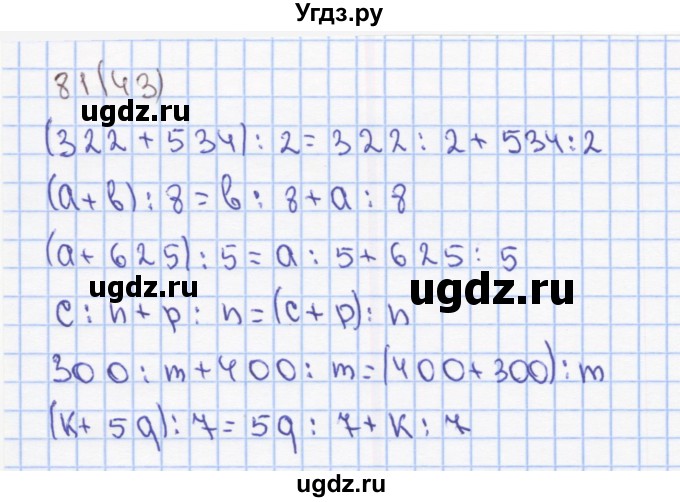 Угдз.ру
81(43)
ugdz.ru
(322 + 534) : 2 = 322 : 2 + 534 : 2
(a + b) : 8 = b : 8 + a : 8
(a + 625) : 5 = a : 5 + 625 : 5
ugdz.ru
ugdz.ru
c : n + p : n = (c + p) : n
300 : m + 400 : m = (400 + 300) : m
(k + 59) : 7 = 59 : 7 + k : 7
ugdz.ru